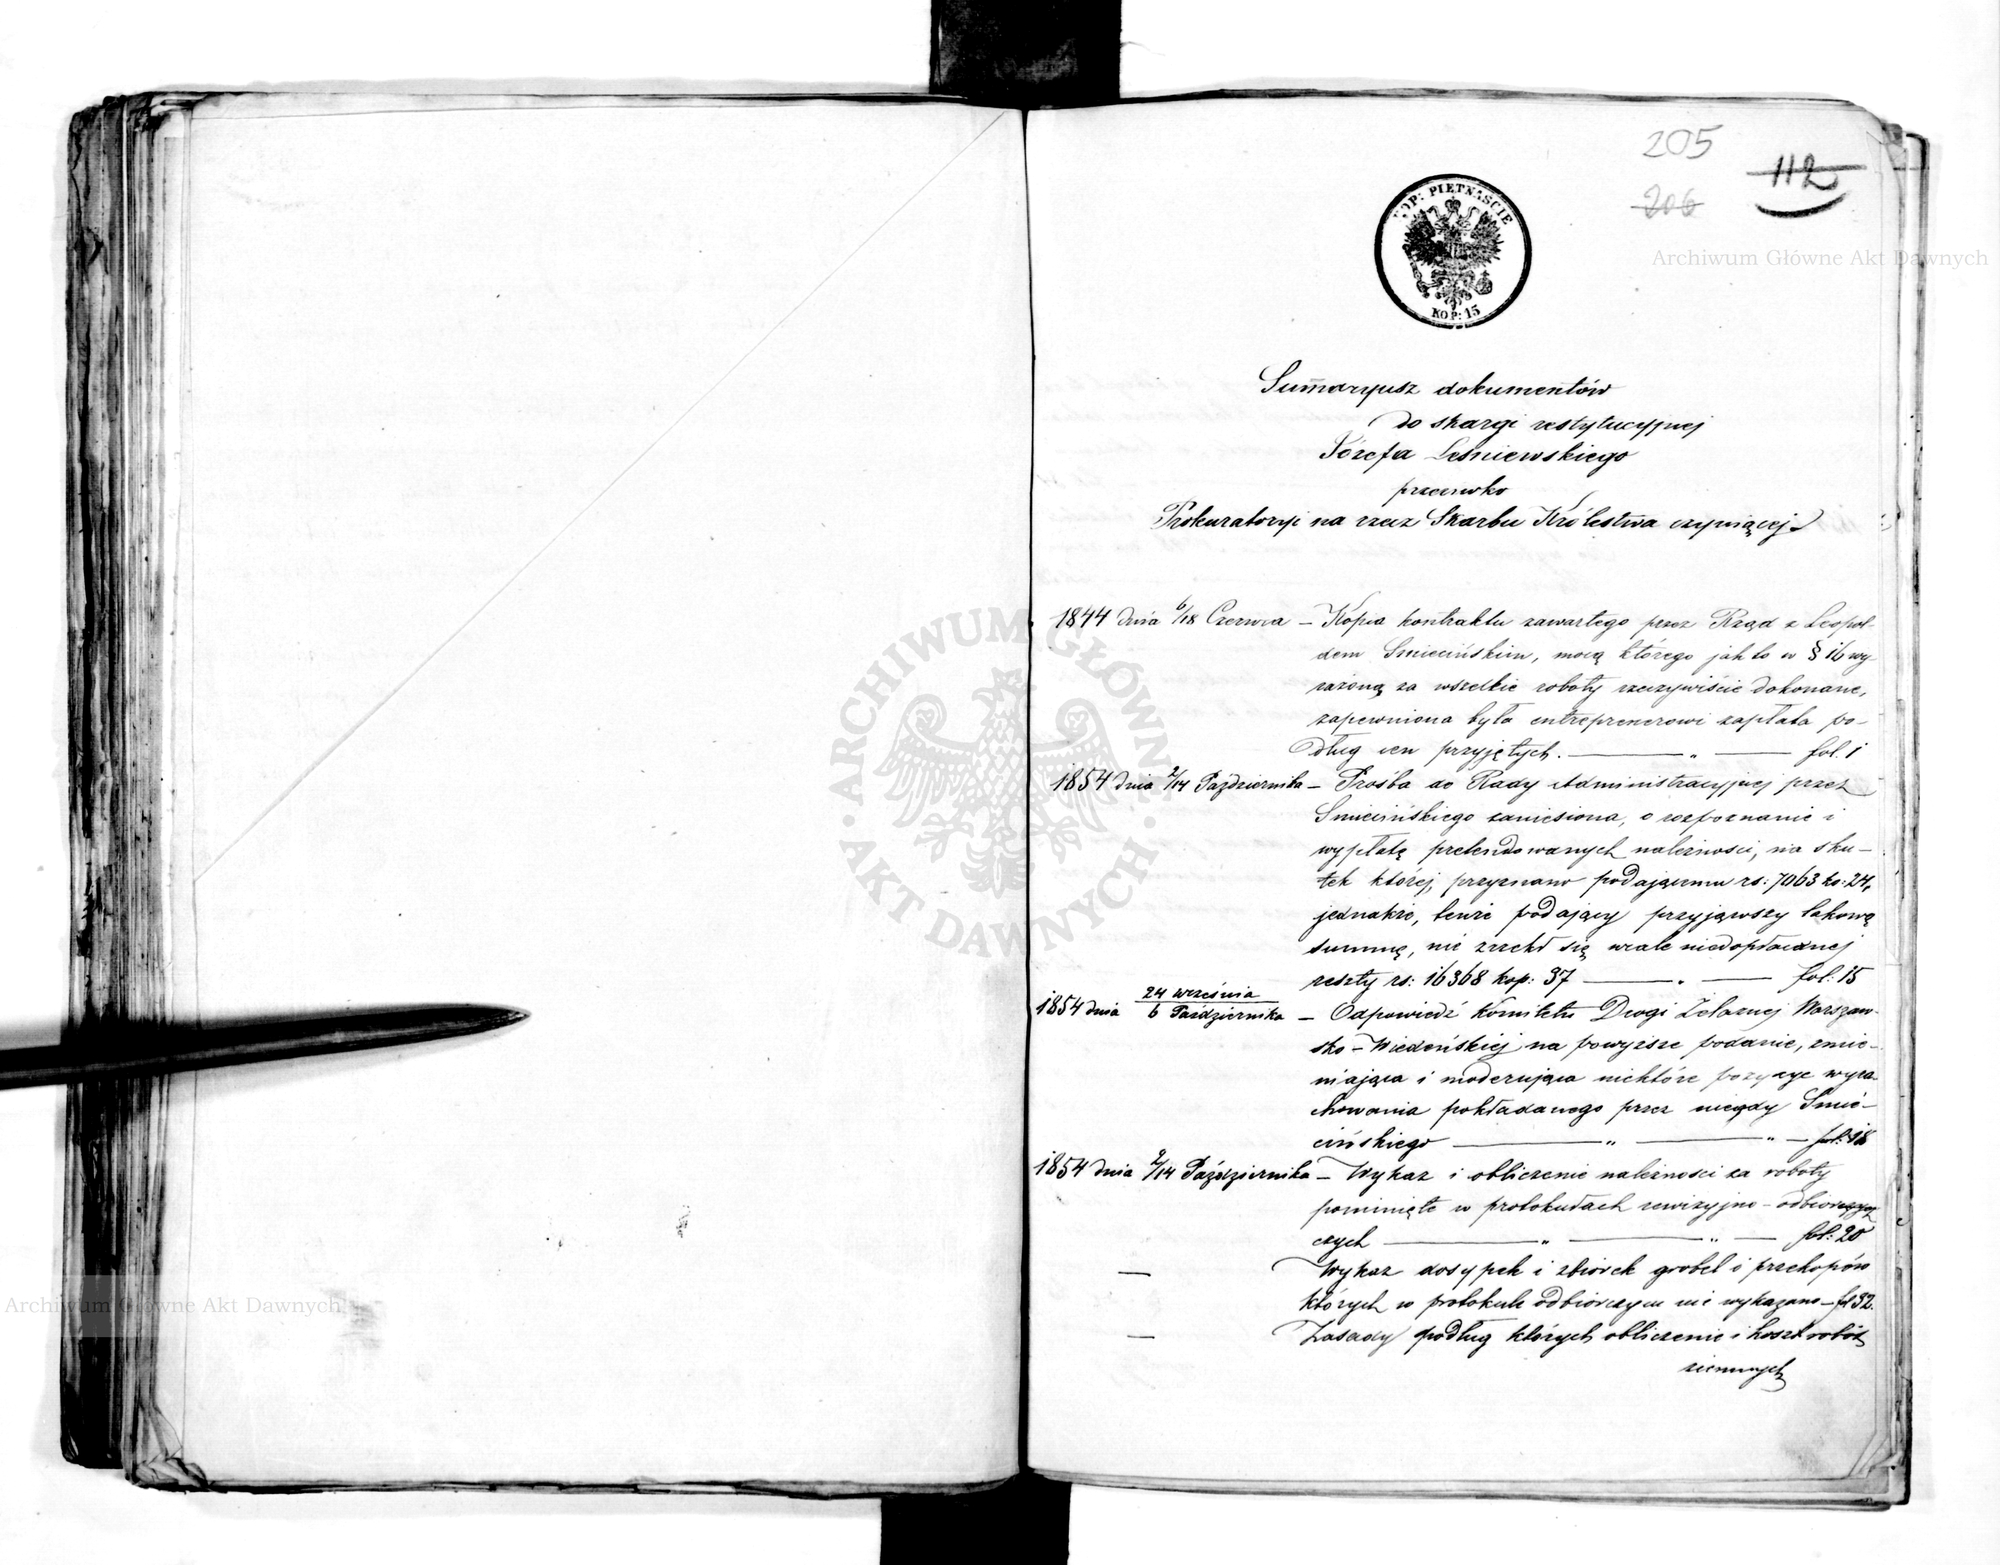 205
112
206
KOP: PIĘTNAŚCIE
KOP: 15
Archiwum Główne Akt Dawnych
Sum̄aryusz dokumentów
do skargi restytucyjnej
Józefa Leśniewskiego
przeciwko
Prokuratoryi na rzecz Skarbu Królestwa czyniącej
1844 dnia 6/18 Czerwca – Kopia kontraktu zawartego przez Rząd z Leopol-
dem Smiecińskim, mocą którego jak to w § 16 wy-
rażoną za wszelkie roboty rzeczywiście dokonane,
zapewniona była entreprenerowi zapłata po-
dług cen przyjętych. — „ — fol. 1
1854 dnia 2/14 Października – Prośba do Rady Administracyjnej przez
Smiecińskiego zaniesiona, o rozpoznanie i
wypłatę pretendowanych należności, na sku-
tek której, przyznano podającemu rs: 7063 ko: 24,
jednakże, tenże podający przyjąwszy takową
summę, nie zrzekł się wcale niedopłaconej
reszty rs: 16368 kop: 37 — „ — fol: 15
1854 dnia 24 września / 6 Października – Odpowiedź Komitetu Drogi Żelaznej Warszaw-
sko-Wiedeńskiej na powyższe podanie, zmie-
niająca i moderująca niektóre pozycye wyra-
chowania pokładanego przez niegdy Smie-
cińskiego — „ — „ — fol: 18
1854 dnia 2/14 Października – Wykaz i obliczenie należności za roboty
pominięte w protokułach rewizyjno-odbiorczych
czych — „ — „ — fol: 20
— Wykaz dosypek i zbiorek grobel i przekopów
których w protokule odbiorczym nie wykazano – fol 32.
— Zasady podług których obliczenie i koszt robót
ziemnych
ARCHIWUM GŁÓWNE · AKT DAWNYCH ·
Archiwum Główne Akt Dawnych